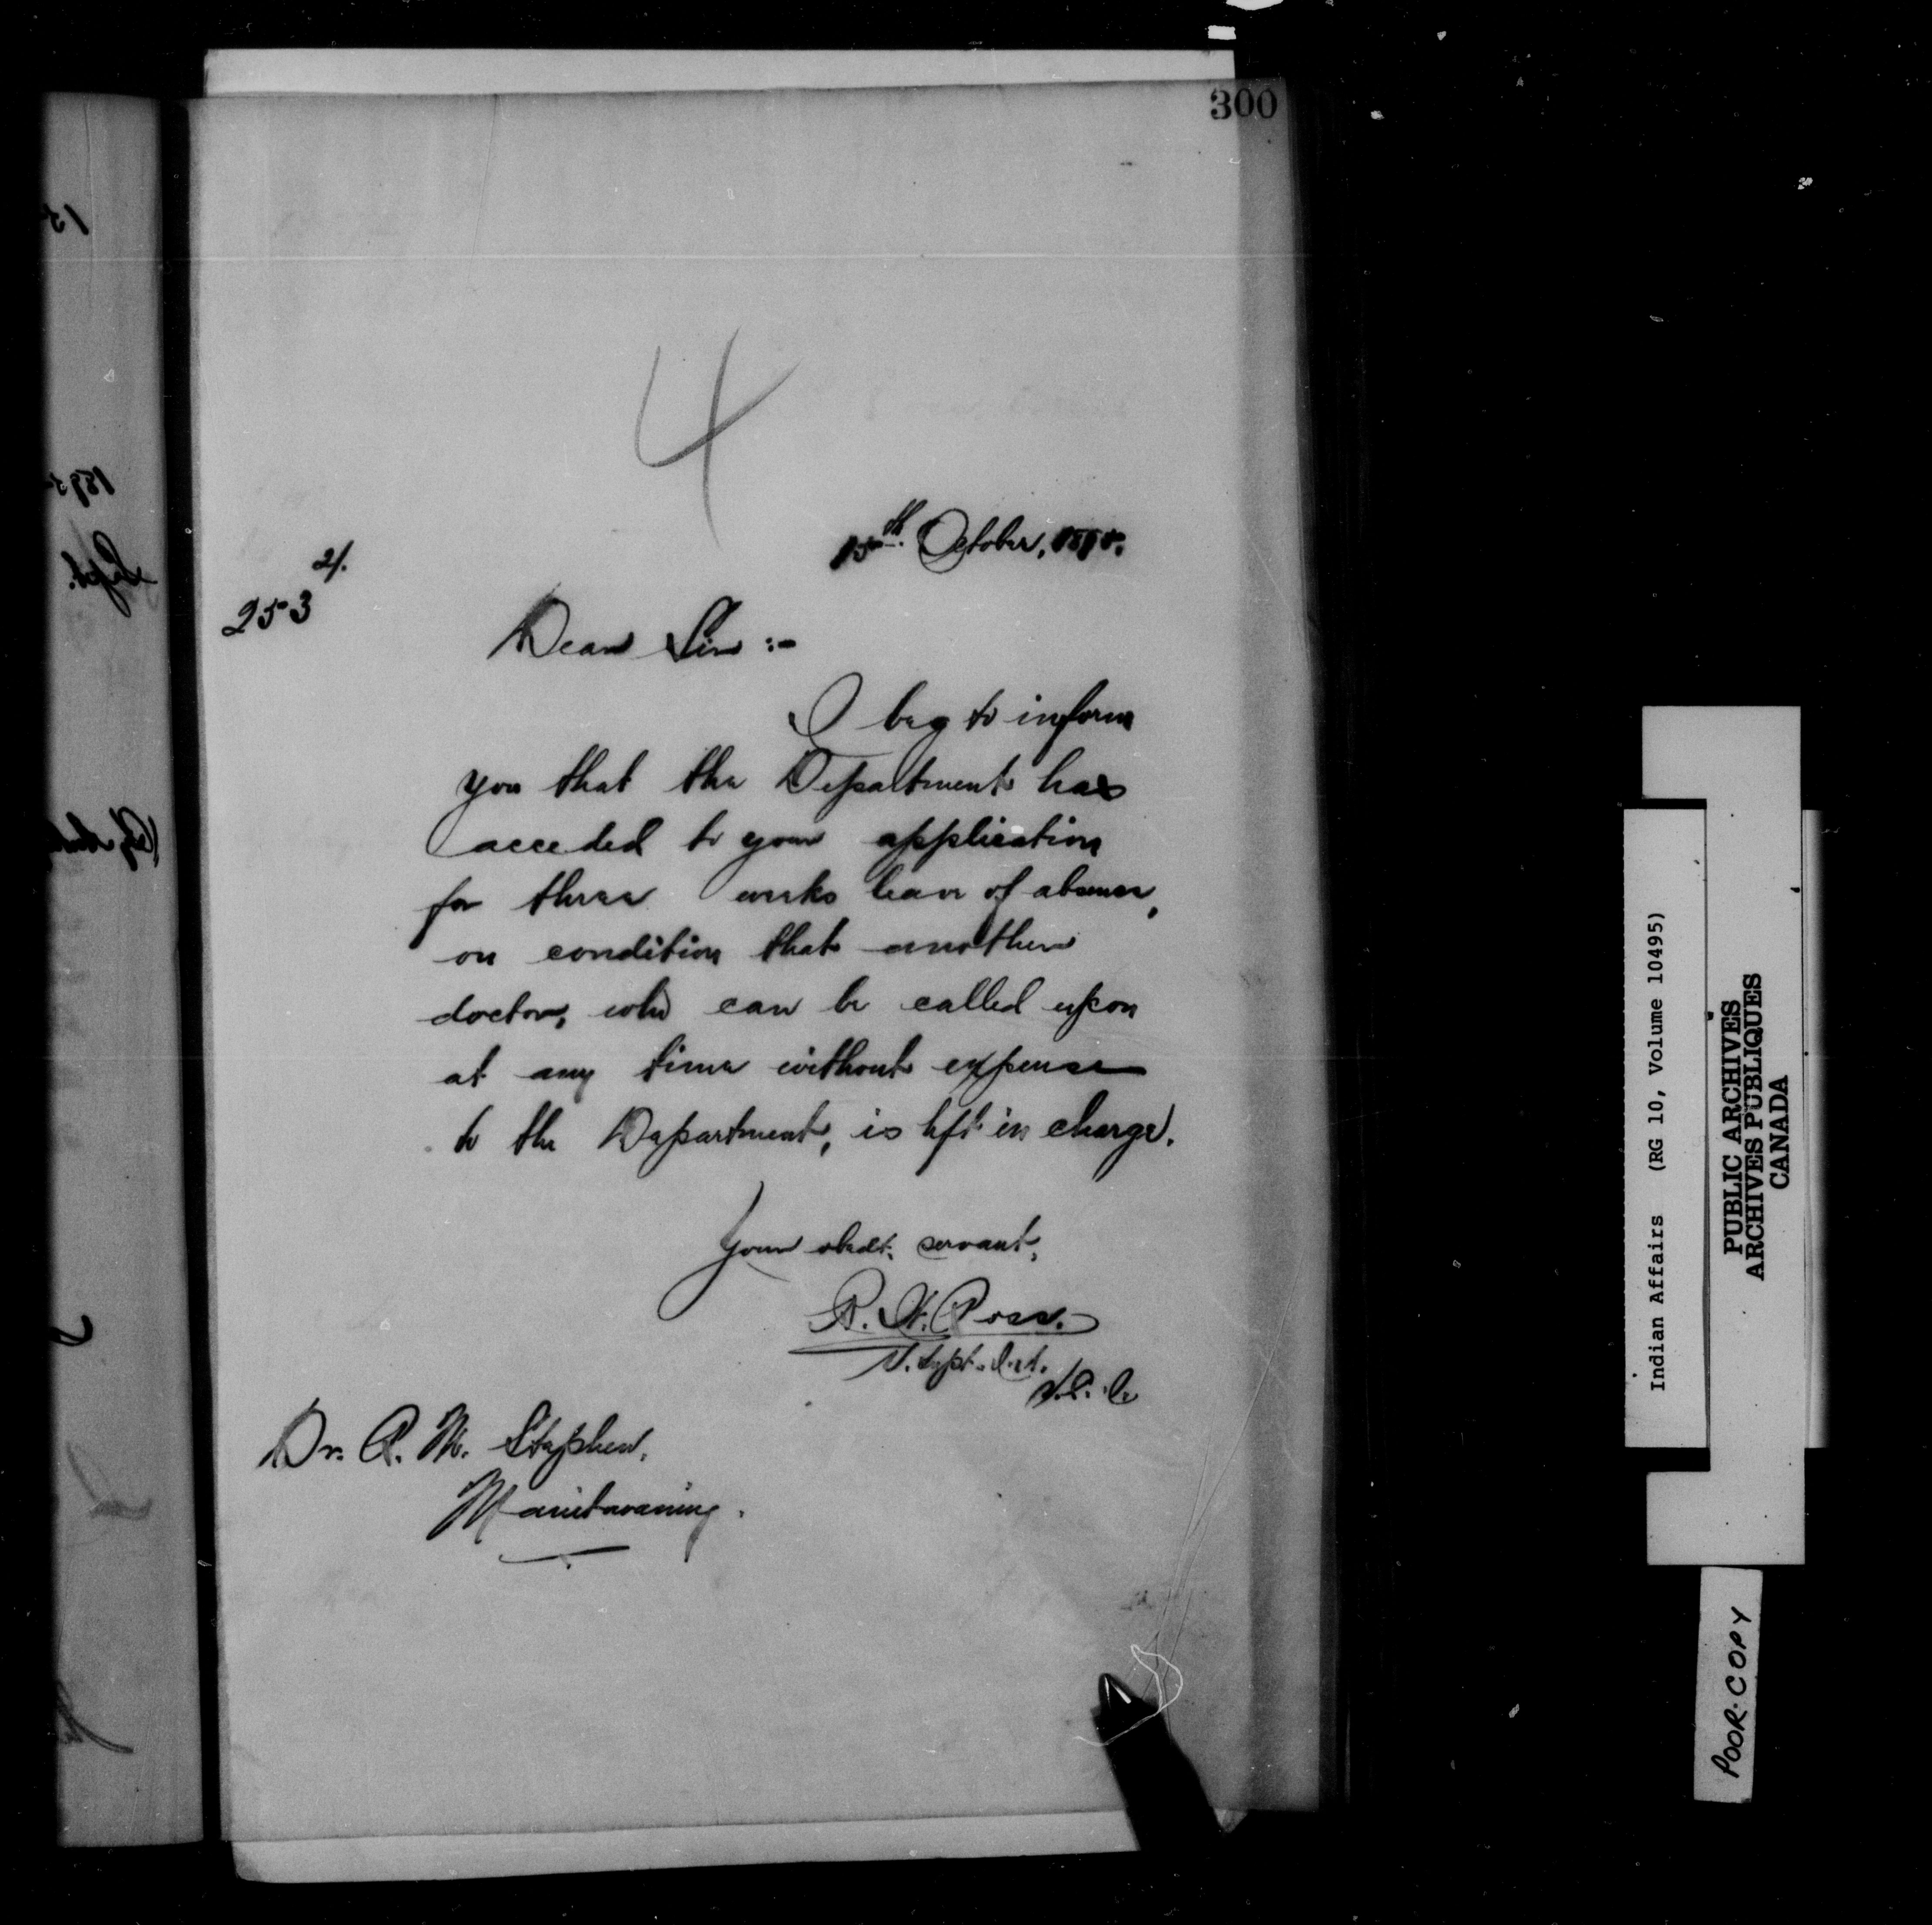 300
4
15th. October, 1895.
21.
253
Dear Sir :-
I beg to inform
you that the Department has
acceded to your application
for three weeks leave of absence,
on condition that another
doctor, who can be called upon
at any time without expense
to the Department, is left in charge.
Your obedt. servant,
B. W. Ross.
V. Supt.
Dr. R. M. Stephen,
Manitowaning.
1895
Supt.
Indian Affairs (RG 10, Volume 10495)
PUBLIC ARCHIVES
ARCHIVES PUBLIQUES
CANADA
POOR·COPY